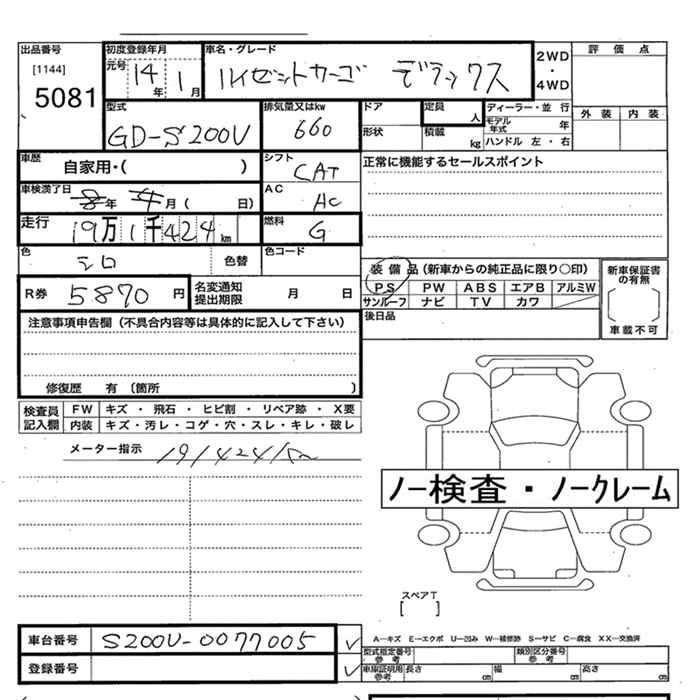 出品番号
[1144]
5081
初度登録年月
元号 14年 1月
車名・グレード
ハイゼットカーゴ デラックス
2WD
・
4WD
評価点
外装 内装
型式
GD-S200V
排気量又はkw
660
ドア
形状
定員 人
積載 kg
ディーラー・並行
モデル年式 年
ハンドル 左・右
車歴
自家用・( )
シフト
CAT
正常に機能するセールスポイント
車検満了日
年 月( 日)
AC
AC
走行
19万1千424km
燃料
G
色
シロ
色替
色コード
R券 5870円
名変通知
提出期限
月 日
装備品(新車からの純正品に限り○印)
PS PW ABS エアB アルミW
サンルーフ ナビ TV カワ
新車保証書
の有無
車載不可
後日品
注意事項申告欄(不具合内容等は具体的に記入して下さい)
修復歴 有(箇所 )
検査員
記入欄
FW キズ・飛石・ヒビ割・リペア跡・X要
内装 キズ・汚レ・コゲ・穴・スレ・キレ・破レ
メーター指示
191424km
ノー検査・ノークレーム
スペアT
[ ]
車台番号
S200V-0077005
登録番号
A―キズ E―エクボ U―凹み W―補修跡 S―サビ C―腐食 XX―交換済
型式指定番号
参考
類別区分番号
参考
車庫証明用
参考
長さ cm
幅 cm
高さ cm